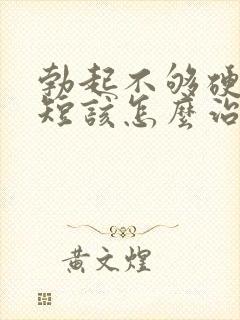 勃起不够硬
短该怎麼治
黄文煌